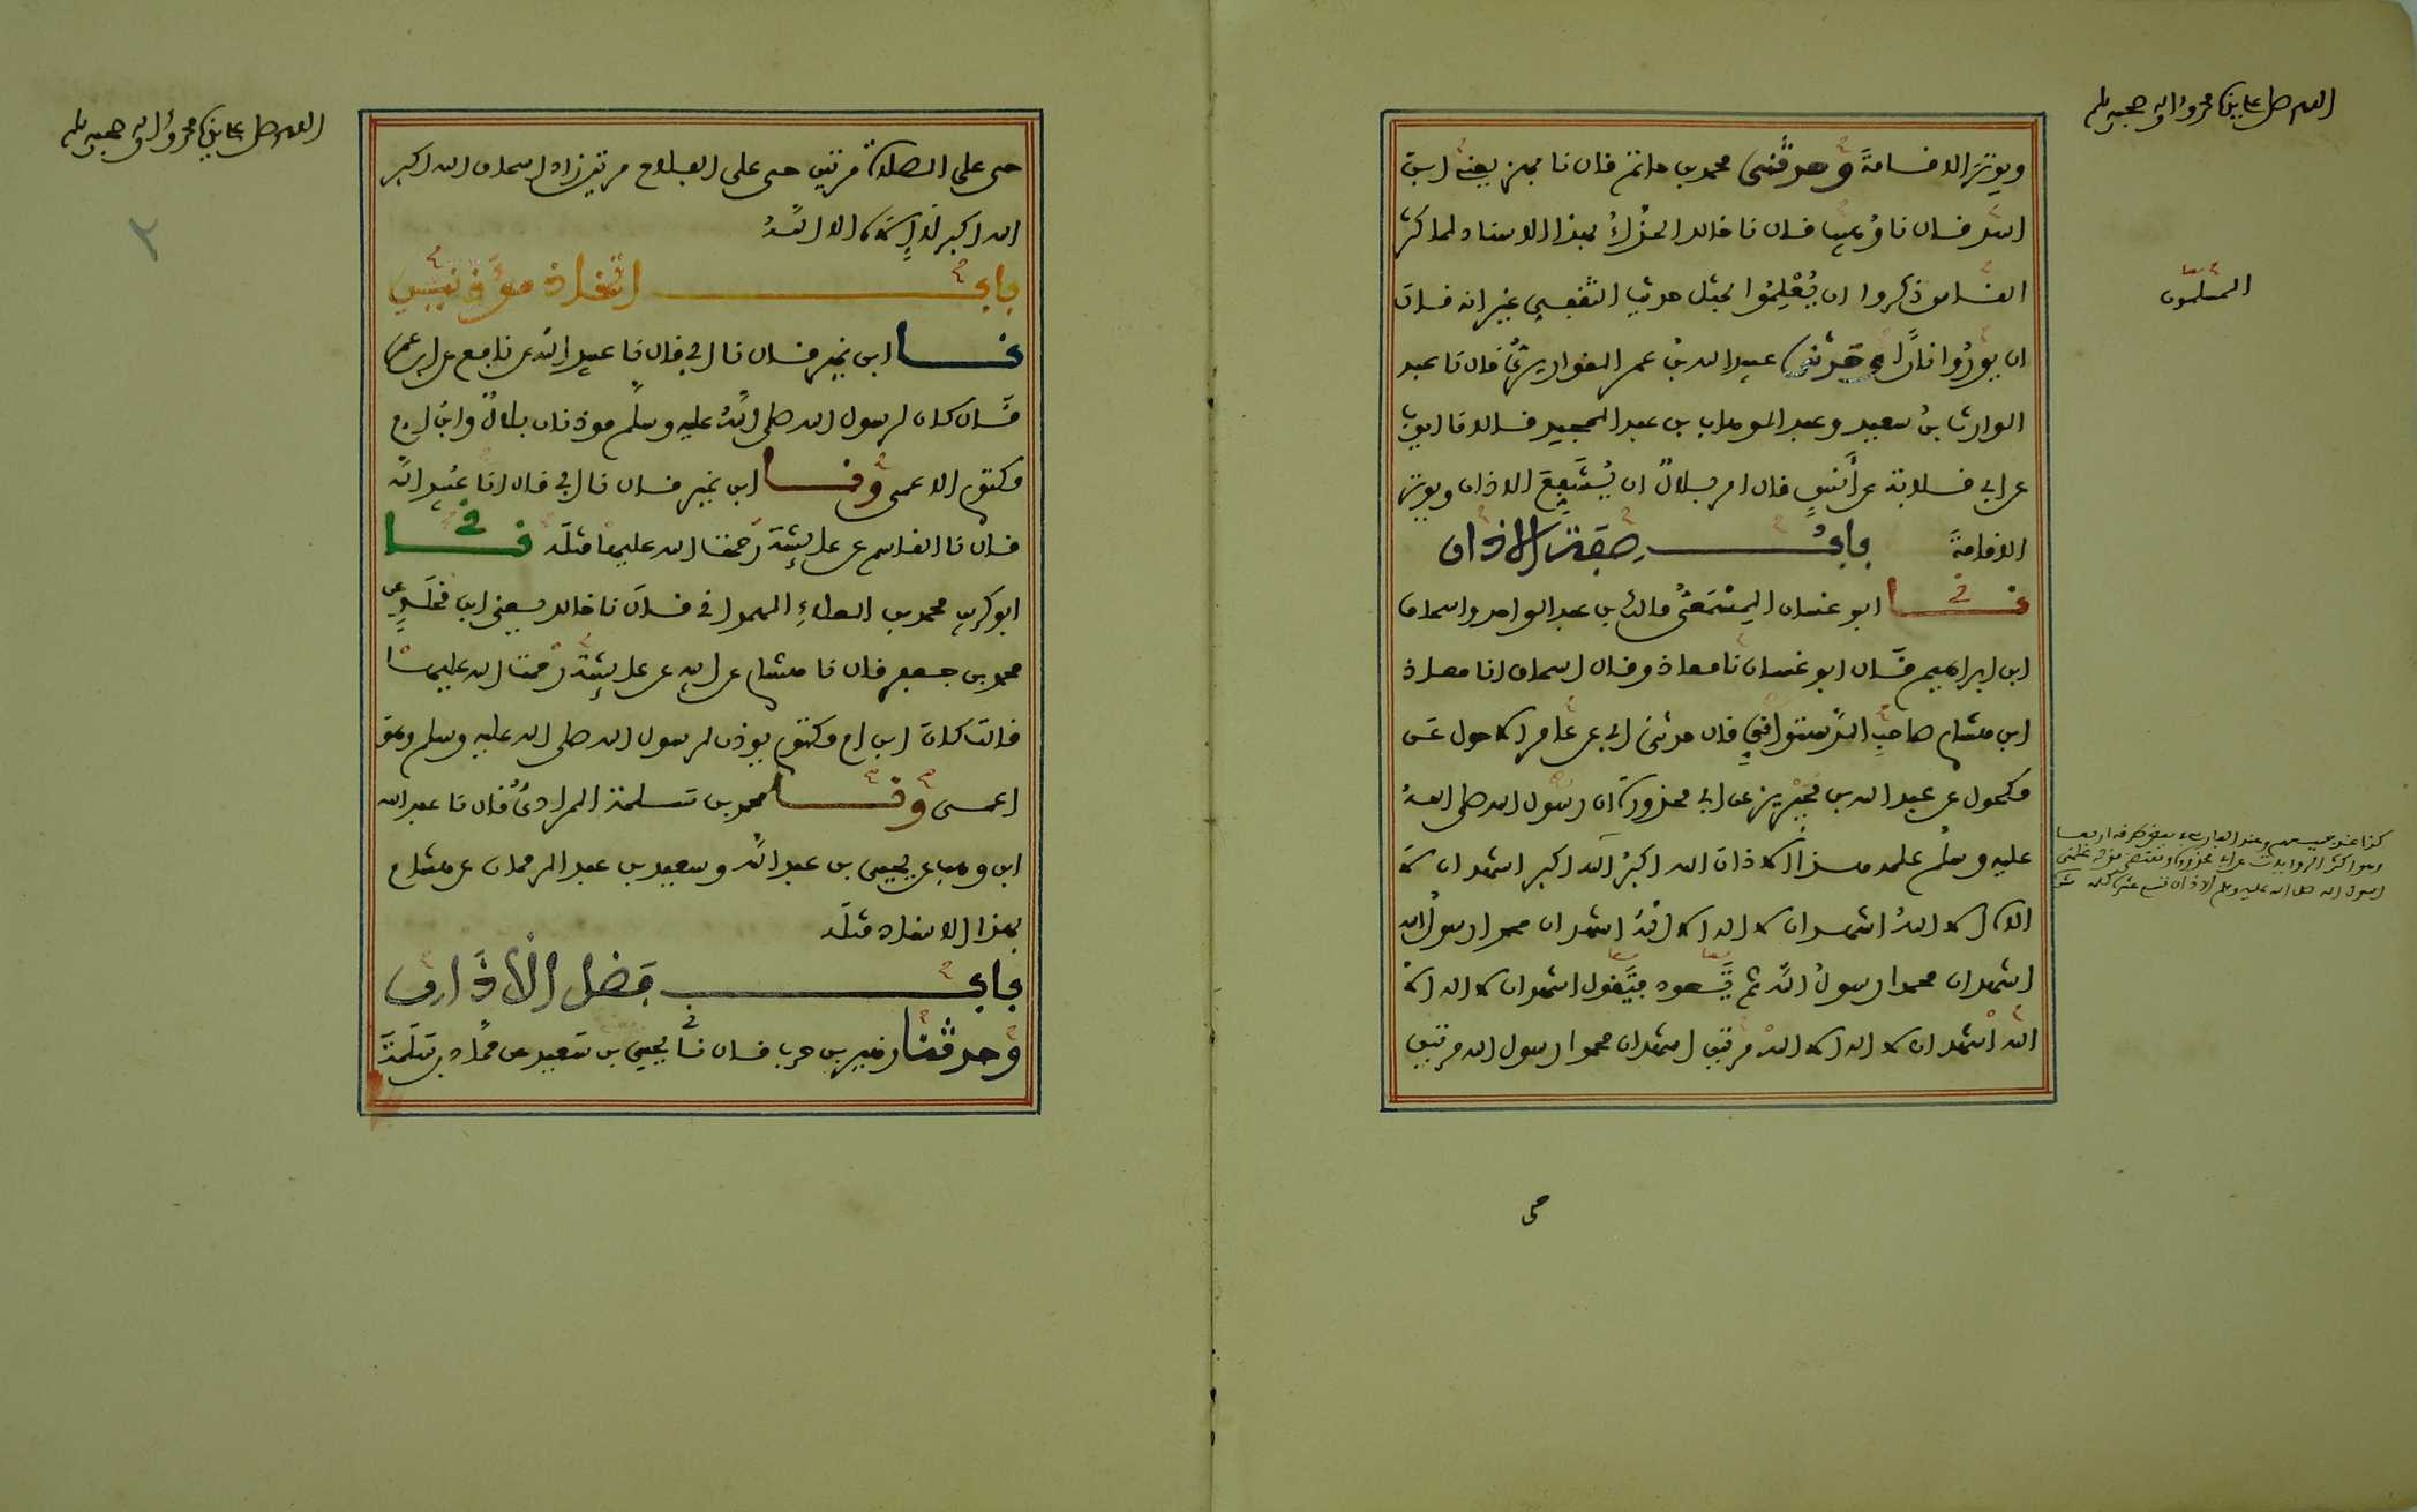 اللهم صل على نبينا محمد وآله وصحبه وسلم
ويوتر الاقامة وحدثني محمد بن حاتم قال نا بهز يعني ابن
اسد قال نا وهيب قال نا خالد الحذاء بهذا الاسناد لما كثر
الناس ذكروا ان يُعْلِمُوا بمثل حديث الثقفي غير انه قال
المسلمون
ان يوروا نارًا وحدثني عبيد الله بن عمر القواريري قال نا عبد
الوارث بن سعيد وعبد الوهاب بن عبد المجيد قالا نا ايوب
عن ابي قلابة عن أنس قال امر بلال ان يشفع الاذان ويوتر
الاقامة باب صفة الاذان
نا ابو غسان المسمعي مالك بن عبد الواحد واسحاق
ابن ابراهيم قال ابو غسان نا معاذ وقال اسحاق انا معاذ
ابن هشام صاحب الدستوائي قال حدثني ابي عن عامر الاحول عن
مكحول عن عبد الله بن محيريز عن ابي محذورة ان رسول الله صلى الله
عليه وسلم علمه هذا الاذان الله اكبر الله اكبر اشهد ان لا
اله الا الله اشهد ان لا اله الا الله اشهد ان محمدا رسول الله
اشهد ان محمدا رسول الله ثم يعود فيقول اشهد ان لا اله الا
الله اشهد ان لا اله الا الله مرتين اشهد ان محمدا رسول الله مرتين
حي
اللهم صل على نبينا محمد وآله وصحبه وسلم
٢
حي على الصلاة مرتين حي على الفلاح مرتين زاد اسحاق الله اكبر
الله اكبر لا إله الا الله
باب اتخاذ مؤذنين
نا ابن نمير قال نا ابي قال نا عبيد الله عن نافع عن ابن عمر
قال كان لرسول الله صلى الله عليه وسلم موذنان بلال وابن ام
مكتوم الاعمى ونا ابن نمير قال نا ابي قال نا عبيد الله
قال نا القاسم عن عائشة رحمة الله عليها مثله نا
ابو كريب محمد بن العلاء الهمداني قال نا خالد يعني ابن مخلد عن
محمد بن جعفر قال نا هشام عن ابيه عن عائشة رحمة الله عليها
قالت كان ابن ام مكتوم يوذن لرسول الله صلى الله عليه وسلم وهو
اعمى ونا محمد بن سلمة المرادي قال نا عبد الله
ابن وهب عن يحيى بن عبد الله وسعيد بن عبد الرحمان عن هشام
بهذا الاسناد مثله
باب فضل الأذان
وحدثنا زهير بن حرب قال نا يحيى بن سعيد عن حماد بن سلمة